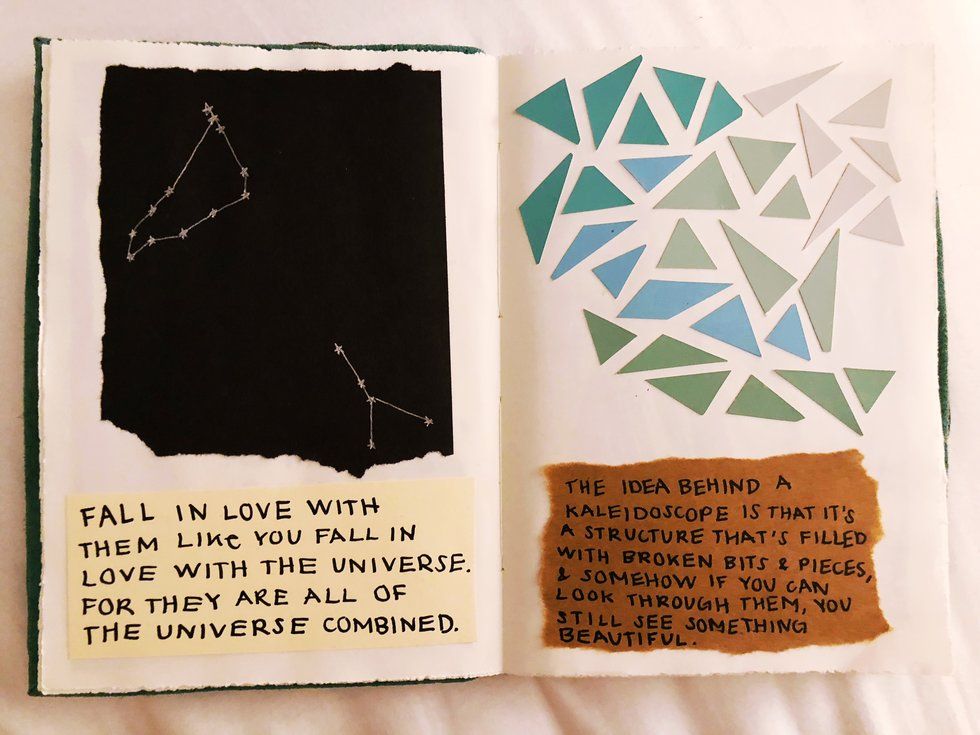 FALL IN LOVE WITH
THEM LIKe YOU FALL IN
LOVE WITH THE UNIVERSE.
FOR THEY ARE ALL OF
THE UNIVERSE COMBINED.
THE IDEA BEHIND A
KALEIDOSCOPE IS THAT IT'S
A STRUCTURE THAT'S FILLED
WITH BROKEN BITS & PIECES,
& SOMEHOW IF YOU CAN
LOOK THROUGH THEM, YOU
STILL SEE SOMETHING
BEAUTIFUL.